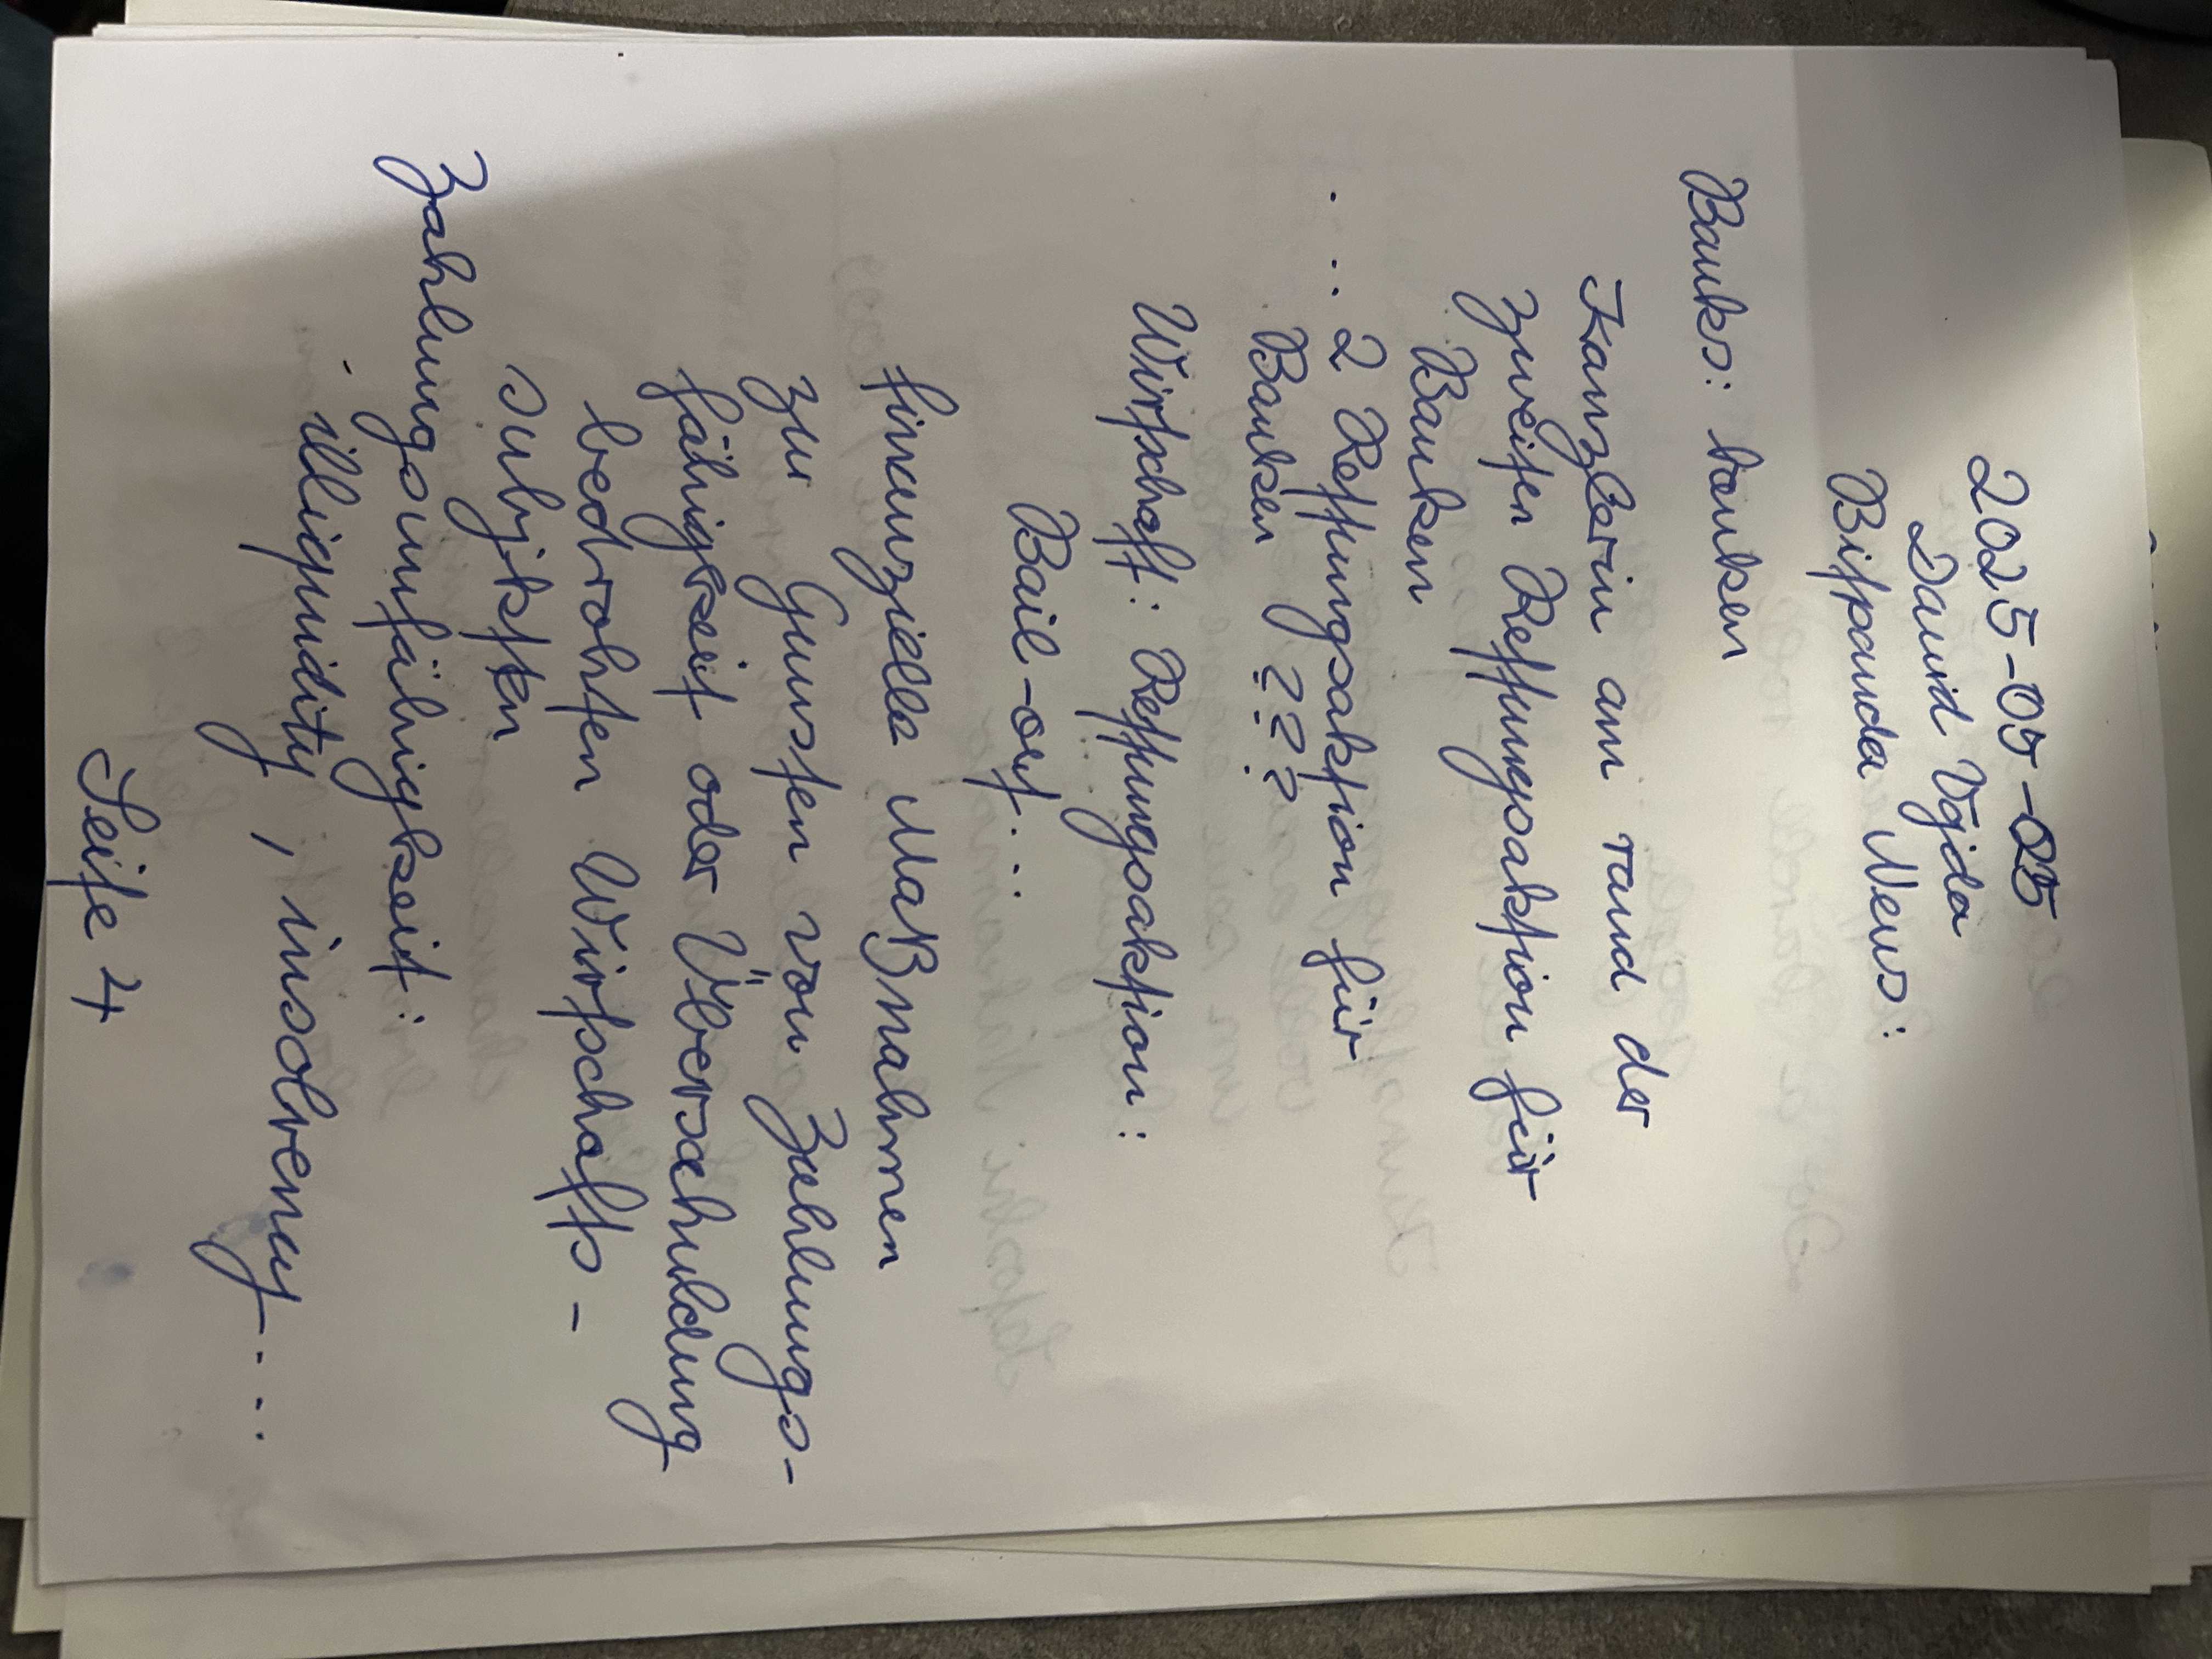 2025-05-05
David Vajda
Bitpanda News:
Banks: banken
Kanzlerin am rand der
zweiten Rettungsaktion für
Banken
... 2 Rettungsaktion für
Banken ? ? ?
Wirtschaft: Rettungsaktion:
Bail-out...
finanzielle Maßnahmen
zu Gunsten von Zahlungs-
fähigkeit oder Überschuldung
bedrohten Wirtschafts-
subjekten
Zahlungsunfähigkeit:
illiquidity, insolvency...
Seite 4